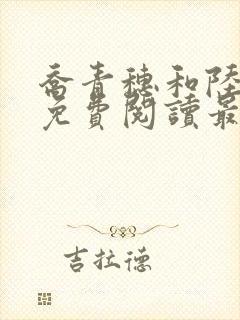 喬青穗和陸
免費閱讀最
吉拉德